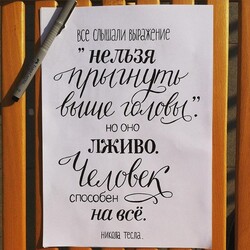 ВСЕ СЛЫШАЛИ ВЫРАЖЕНИЕ
"НЕЛЬЗЯ
прыгнуть
выше головы".
НО ОНО
ЛЖИВО.
Человек
СПОСОБЕН
НА ВСЁ.
НИКОЛА ТЕСЛА.